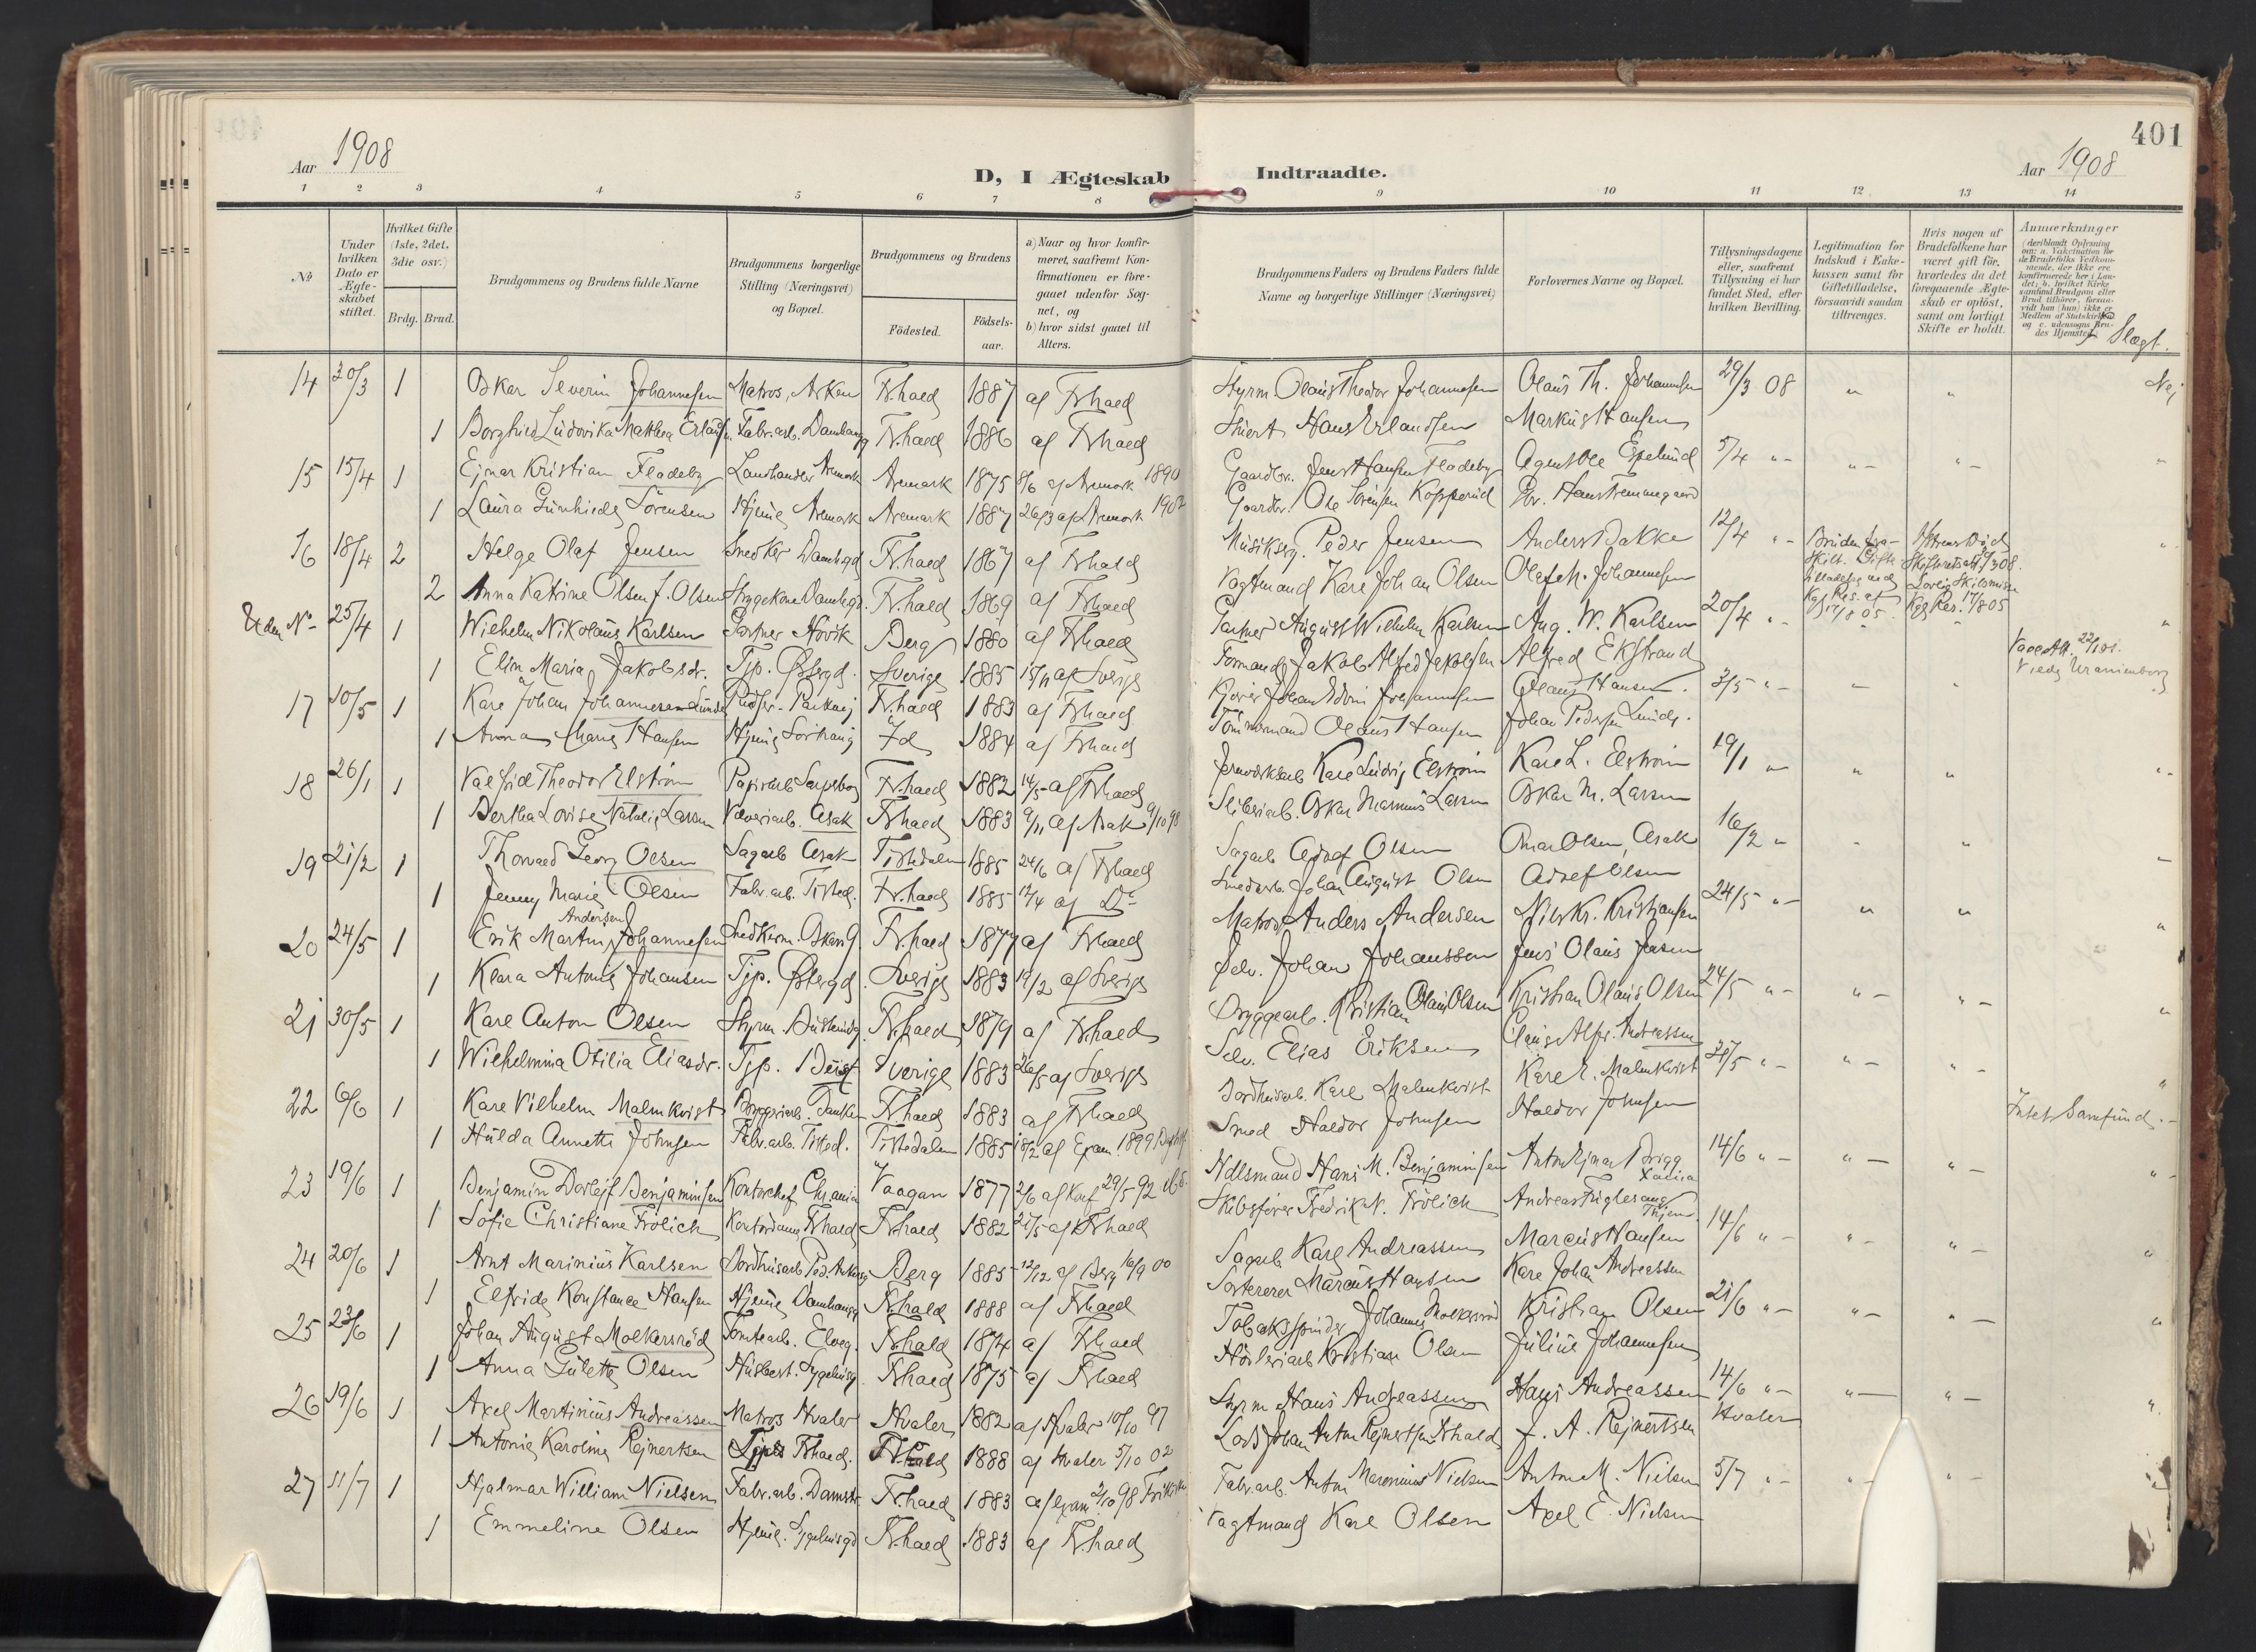 401
Aar 1908
Aar 1908
D, I Ægteskab Indtraadte.
1 2 3 4 5 6 7 8 9 10 11 12 13 14
No
Under hvilken Dato er Ægteskabet stiftet.
Hvilket Gifte (1ste, 2det, 3die osv.)
Brdg. Brud.
Brudgommens og Brudens fulde Navne
Brudgommens borgerlige Stilling (Næringsvei) og Bopæl.
Brudgommens og Brudens
Födested.
Födselsaar.
a) Naar og hvor konfirmeret, saafremt Konfirmationen er foregaaet udenfor Sognet, og
b) hvor sidst gaaet til Alters.
Brudgommens Faders og Brudens Faders fulde Navne og borgerlige Stillinger (Næringsvei)
Forlovernes Navne og Bopæl.
Tillysningsdagene eller, saafremt Tillysning ei har fundet Sted, efter hvilken Bevilling.
Legitimation for Indskud i Enkekassen samt for Giftetilladelse, forsaavidt saadan tiltrænges.
Hvis nogen af Brudefolkene har været gift før, hvorledes da det foregaaende Ægteskab er opløst, samt om lovligt Skifte er holdt.
Anmærkninger
Slægt.
14 30/3 1 Oskar Severin Johannesen Matros, Asken Fr.hald 1887 af Frhald Styrm. Olaus Theodor Johannesen Olaus Th. Johannesen 29/3 08 " " Nej
1 Borghild Ludovika Mathea Erlandsen Fabr.arb. Damhaug Fr.hald 1886 af Frhald Hans Erlandsen Markus Hansen
15 15/4 1 Ejnar Kristian Fladeby Landhandler Aremark Aremark 1875 8/6 af Aremark 1890 Gaardbr. Jens Hansen Fladeby Agent Ole Epelund 5/4 " -
1 Laura Gunhilde Sörensen Hjeme Aremark Aremark 1887 26/3 af Aremark 1902 Gaardbr. Ole Sörensen Kopperud Gbr. Hans Tremangaard
16 18/4 2 Helge Olaf Jensen Snedker Damhgd Fr.hald 1867 af Frhald Musikserg. Peder Jensen Anders Bakke 12/4 " -
2 Anna Katrine Olsen f. Olsen Strygekone Damhgd. Fr.hald 1869 af Frhald Vagtmand Karl Johan Olsen Olaf M. Johannesen
Bruden Kgl Res. af 17/8 05. Lovlig Skilsmisse Kgl Res. 17/8 05
Uden No 25/4 1 Wilhelm Nikolaus Karlsen Gartner Hovik Berg 1880 af Frhald Gartner August Wilhelm Karlsen Aug. W. Karlsen 20/4 " -
1 Elin Maria Jakobsdr. Tjp. Östergd. Sverige 1885 15/11 af Sverige Formand Jakob Alfred Jakobsen Alfred Ekstrand
Viede Uranienborg
17 10/5 1 Karl Johan Johannesen Lunde Pudser. Parkvej Fr.hald 1883 af Frhald Johan Edvin Johannesen Olaus Hansen. 3/5 " -
1 Anna Charlie Hansen Hjeme Id 1884 af Frhald Tömmermand Olaus Hansen Johan Pedersen Lunde.
18 26/1 1 Valfrid Theodor Elström Papirarb Sarpsborg Fr.hald 1882 14/5 af Frhald Jernverksarb Karl Ludvig Elström Karl L. Elström 19/1 "
1 Bertha Lovise Natalie Larsen Væveriarb. Asak Frhald 1883 9/11 af Asak 9/10 98 Sliberiarb. Oskar Marinus Larsen Oskar M. Larsen
19 21/2 1 Thorvald Georg Olsen Sagarb Asak Tistedalen 1885 24/6 af Frhald Sagarb Adolf Olsen Omar Olsen, Asak 16/2 "
1 Jenny Marie Olsen Fabr.arb. Tisted. Fr.hald 1885 17/4 af Do Smedarb. Johan August Olsen Adolf Olsen
20 24/5 1 Erik Martin Andersen Johannesen Snedkerm. Oskersg. Fr.hald 1877 af Frhald Matros Anders Andersen Nils Kr. Kristiansen 24/5 " -
1 Klara Antonia Johansen Tjp. Östergd. Sverige 1883 19/2 af Sverige Selv. Johan Johanssen Jens Olaus Jensen
21 30/5 1 Karl Anton Olsen Styrm. Busterudg. Fr.hald 1879 af Frhald Bryggearb. Kristian Olaus Olsen Kristian Olaus Olsen 24/5 " -
1 Wilhelmina Otilia Eliasdr. Tjp. Sverige 1883 26/5 af Sverige Selv. Elias Eriksen Claus Alfr. Andreassen
22 6/6 1 Karl Vilhelm Malmkvist Bryggeriarb. Fr.hald 1883 af Frhald Bordhusarb. Karl Malmkvist Karl E. Malmkvist 28/5 " -
1 Hulda Annette Johnsen Fabr.arb. Tisted. Tistedalen 1885 18/2 af Exam. 1899 Smed Haldor Johnsen Haldor Johnsen
Intet Samfund.
23 19/6 1 Benjamin Dorlejf Benjaminsen Kontorchef Chr.ania Vaagan 1877 2/6 af Konf 29/5 92 Hans M. Benjaminsen Anton Ejnar Brigg 14/6 " -
1 Sofie Christiane Frölich Kontordame Frhald Fr.hald 1882 21/5 af Frhald Skibsförer Fredrik N. Frölich Andreas Fuglesang
24 20/6 1 Arnt Marinius Karlsen Bordhusarb Ped. Ankersg Berg 1885 12/12 af Berg 16/9 00 Sagarb Karl Andreassen Marcus Hansen 14/6 " -
1 Elfride Konstance Hansen Hjeme Damhaug Fr.hald 1888 af Frhald Sorterer Marcus Hansen Karl Johan Andreassen
25 23/6 1 Johan August Molkersröd Tomtearb. Elveg. Fr.hald 1874 af Frhald Tobakspinder Johannes Molkersröd Kristian Olsen 21/6 " -
1 Anna Gulette Olsen Husbest. Sygehusg. Frhald 1875 af Frhald Hövleriarb Kristian Olsen Juline Johannesen
26 19/6 1 Axel Martinius Andreassen Matros Hvaler Hvaler 1882 af Hvaler 10/10 97 Styrm Hans Andreassen Hans Andreassen 14/6 " -
Hvaler
1 Antonie Karoline Rejnertsen Frhald. Fr.hald 1888 af Hvaler 5/10 02 Lods Johan Anton Rejnertsen Frhald J. A. Rejnertsen
27 11/7 1 Hjalmar William Nielsen Fabr.arb. Damstr. Fr.hald 1883 af exam 2/10 98 Frikirken Fabr.arb. Anton Maronius Nielsen Anton M. Nielsen 5/7 " -
1 Emmeline Olsen Hjeme. Sygehusgd Fr.hald 1883 af Fr.hald Vagtmand Karl Olsen Axel E. Nielsen